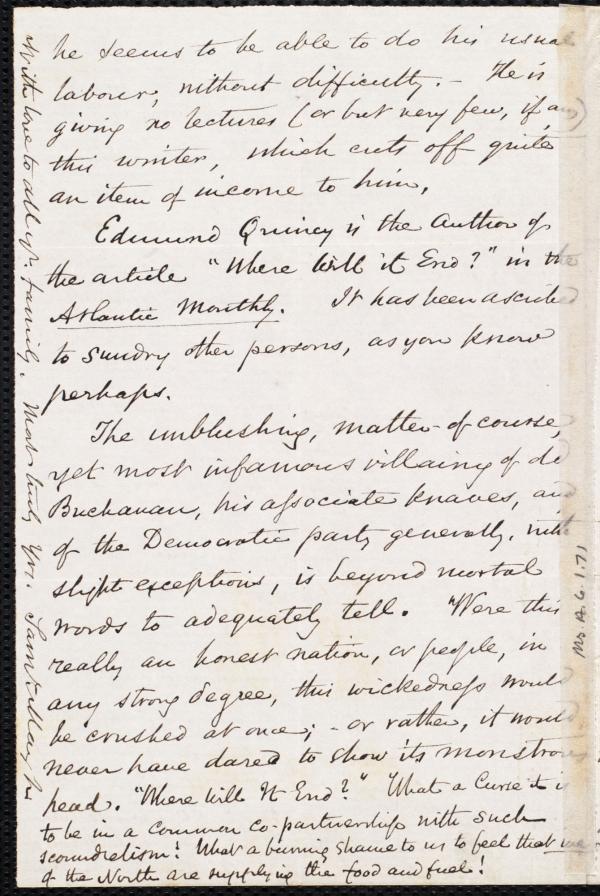 he seems to be able to do his usual
labour, without difficulty. - He is
giving no lectures (or but very few, if any)
this winter, which cuts off quite
an item of income to him.
Edmund Quincy is the author of
the article "Where Will it End?" in the
Atlantic Monthly. It has been ascribed
to sundry other persons, as you know
perhaps.
The unblushing, matter-of-course,
yet most infamous villainy of
Buchanan, his associate knaves, and
of the Democratic party generally, with
slight exceptions, is beyond mortal
words to adequately tell. Were this
really an honest nation, or people, in
any strong degree, this wickedness would
be crushed at once; - or rather, it would
never have dared to show its monstrous
head. "Where Will It End?" What a Curse it is
to be in a common co-partnership with such
scoundrelism! What a burning shame to us to feel that we
of the North are supplying the food and fuel!
With love to all yr. family. Most truly Yrs. Saml. May Jr
Ms. A. 6. 1. 71